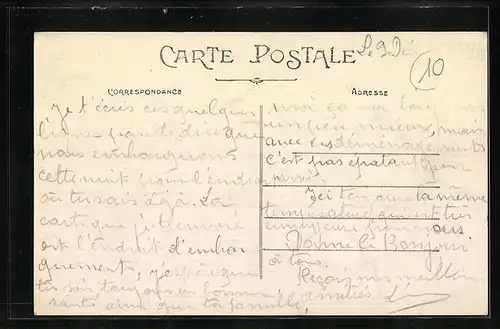 Le 9 Dé
CARTE POSTALE
10
CORRESPONDANCE
ADRESSE
Je t'écris ces quelques
lignes pour te dire que
nous embarquons
cette nuit pour l'endroit
où tu sais déjà. La
carte que je t'envoie
est l'endroit d'embar
quement, j'espère que
tu sois toujours en bonne
santé ainsi que ta famille,
moi ça va toujours
un peu mieux, mais
avec ces déménagements
c'est pas épatant pour
Ici toujours la même
température qui est très
ennuyeuse pour nous
Donne le Bonjour
à tous.
Reçois mes meilleurs
amitiés.